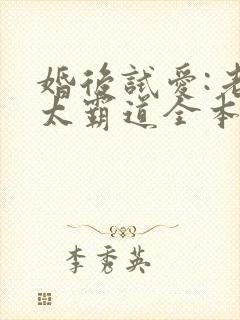 婚後試愛:老
太霸道全本
李秀英